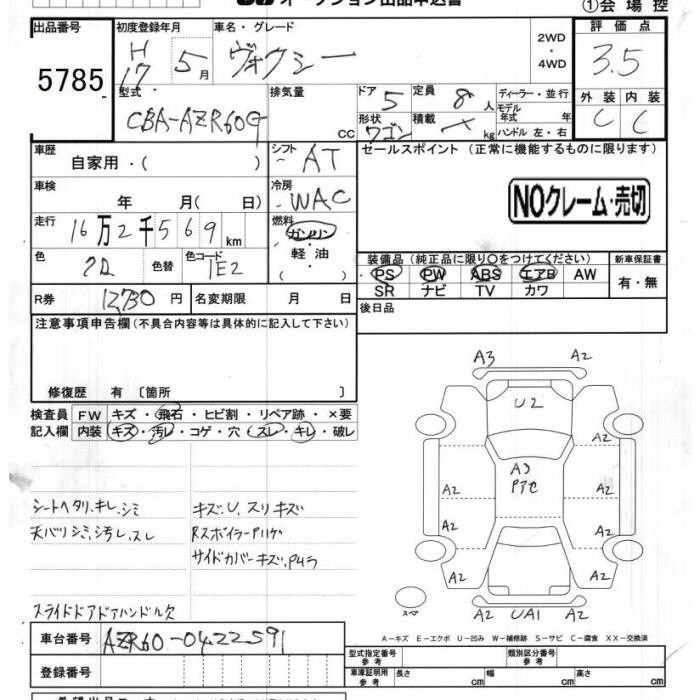 オークション出品申込書
①会場控
出品番号 初度登録年月 車名・グレード 評価点
5785 H17 5月 ヴォクシー 2WD・4WD 3.5
型式 排気量 ドア 5 定員 8人 ディーラー・並行 外装 内装
CBA-AZR60G cc 形状 ワゴン 積載 kg モデル年式 年 C C
ハンドル 左・右
車歴 自家用・( ) シフト AT セールスポイント (正常に機能するものに限ります)
車検 年 月( 日) 冷房 WAC NOクレーム・売切
走行 16万2千569km 燃料 ガソリン・軽油・( )
色 色替 色コード 1E2
装備品 (純正品に限り○をつけてください) 新車保証書
PS PW ABS エアB AW 有・無
SR ナビ TV カワ
R券 12730円 名変期限 月 日 後日品
注意事項申告欄 (不具合内容等は具体的に記入して下さい)
修復歴 有 〔箇所 〕
検査員 FW キズ・飛石・ヒビ割・リペア跡・×要
記入欄 内装 キズ・汚レ・コゲ・穴・スレ・キレ・破レ
シートヘタリ、キレ、シミ キズ、U、スリキズ
天バリシミ、汚レ、スレ RスポイラーPハゲ
サイドカバーキズ、Pムラ
スライドドアドアハンドル欠
A3 A2
U2
A2 A2
A3
Pアセ
A2 A2
A2 A2
A2 A2
A2 UA1 A2
スペア
A-キズ E-エクボ U-凹み W-補修跡 S-サビ C-腐食 XX-交換済
車台番号 AZR60-0422591
型式指定番号 参考 類別区分番号 参考
登録番号 車庫証明用 参考 長さ cm 幅 cm 高さ cm